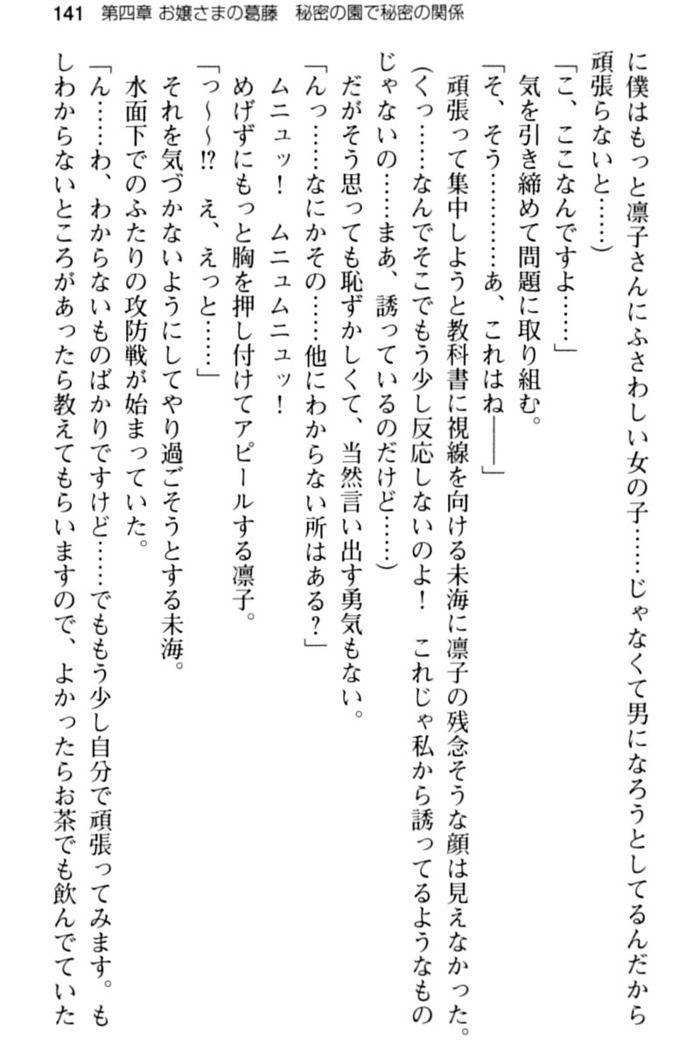 141　第四章 お嬢さまの葛藤　秘密の園で秘密の関係
に僕はもっと凛子さんにふさわしい女の子……じゃなくて男になろうとしてるんだから
頑張らないと……)
「こ、ここなんですよ……」
気を引き締めて問題に取り組む。
「そ、そう…………あ、これはね――」
頑張って集中しようと教科書に視線を向ける未海に凛子の残念そうな顔は見えなかった。
(くっ……なんでそこでもう少し反応しないのよ！　これじゃ私から誘ってるようなもの
じゃないの……まあ、誘っているのだけど……)
だがそう思っても恥ずかしくて、当然言い出す勇気もない。
「んっ……なにかその……他にわからない所はある？」
ムニュッ！　ムニュムニュッ！
めげずにもっと胸を押し付けてアピールする凛子。
「っ～～!?　え、えっと……」
それを気づかないようにしてやり過ごそうとする未海。
水面下でのふたりの攻防戦が始まっていた。
「ん……わ、わからないものばかりですけど……でももう少し自分で頑張ってみます。も
しわからないところがあったら教えてもらいますので、よかったらお茶でも飲んでていた